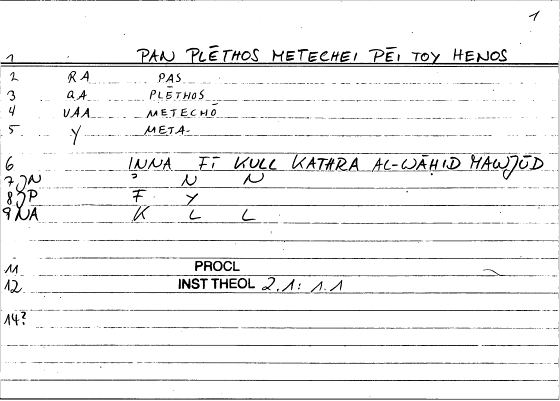 1
1 PAN PLĒTHOS METECHEI PĒI TOY HENOS
2 RA PAS
3 aA PLĒTHOS
4 VAA METECHŌ
5 Y META-
6 INNA FĪ KULL KATHRA AL-WĀHID MAWJŪD
7 JN ? N N
8 JP F Y
9 NA K L L
11 PROCL
12 INST THEOL 2.1: 1.1
14?